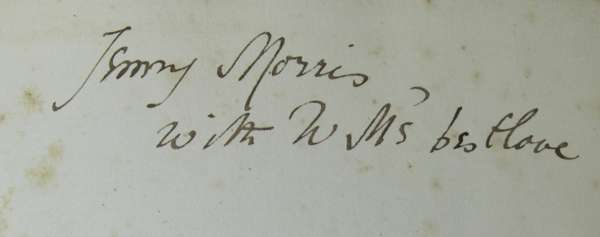 Jenny Morris
with W M's best love